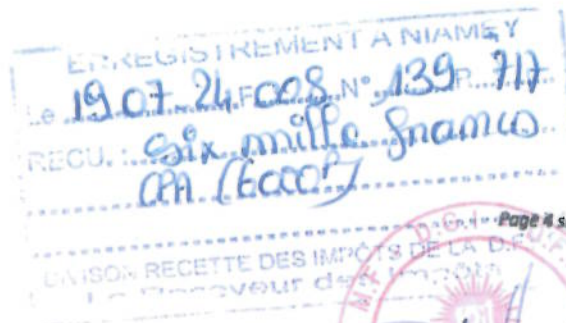 ENREGISTREMENT A NIAMEY
Le 19.07.24 F 008 N° 139 P 717
RECU. : Six mille francs
CFA (6000F)
Page 4 s
LIAISON RECETTE DES IMPÔTS DE LA D.
Le Receveur des Impôts
M.F. D.G.I